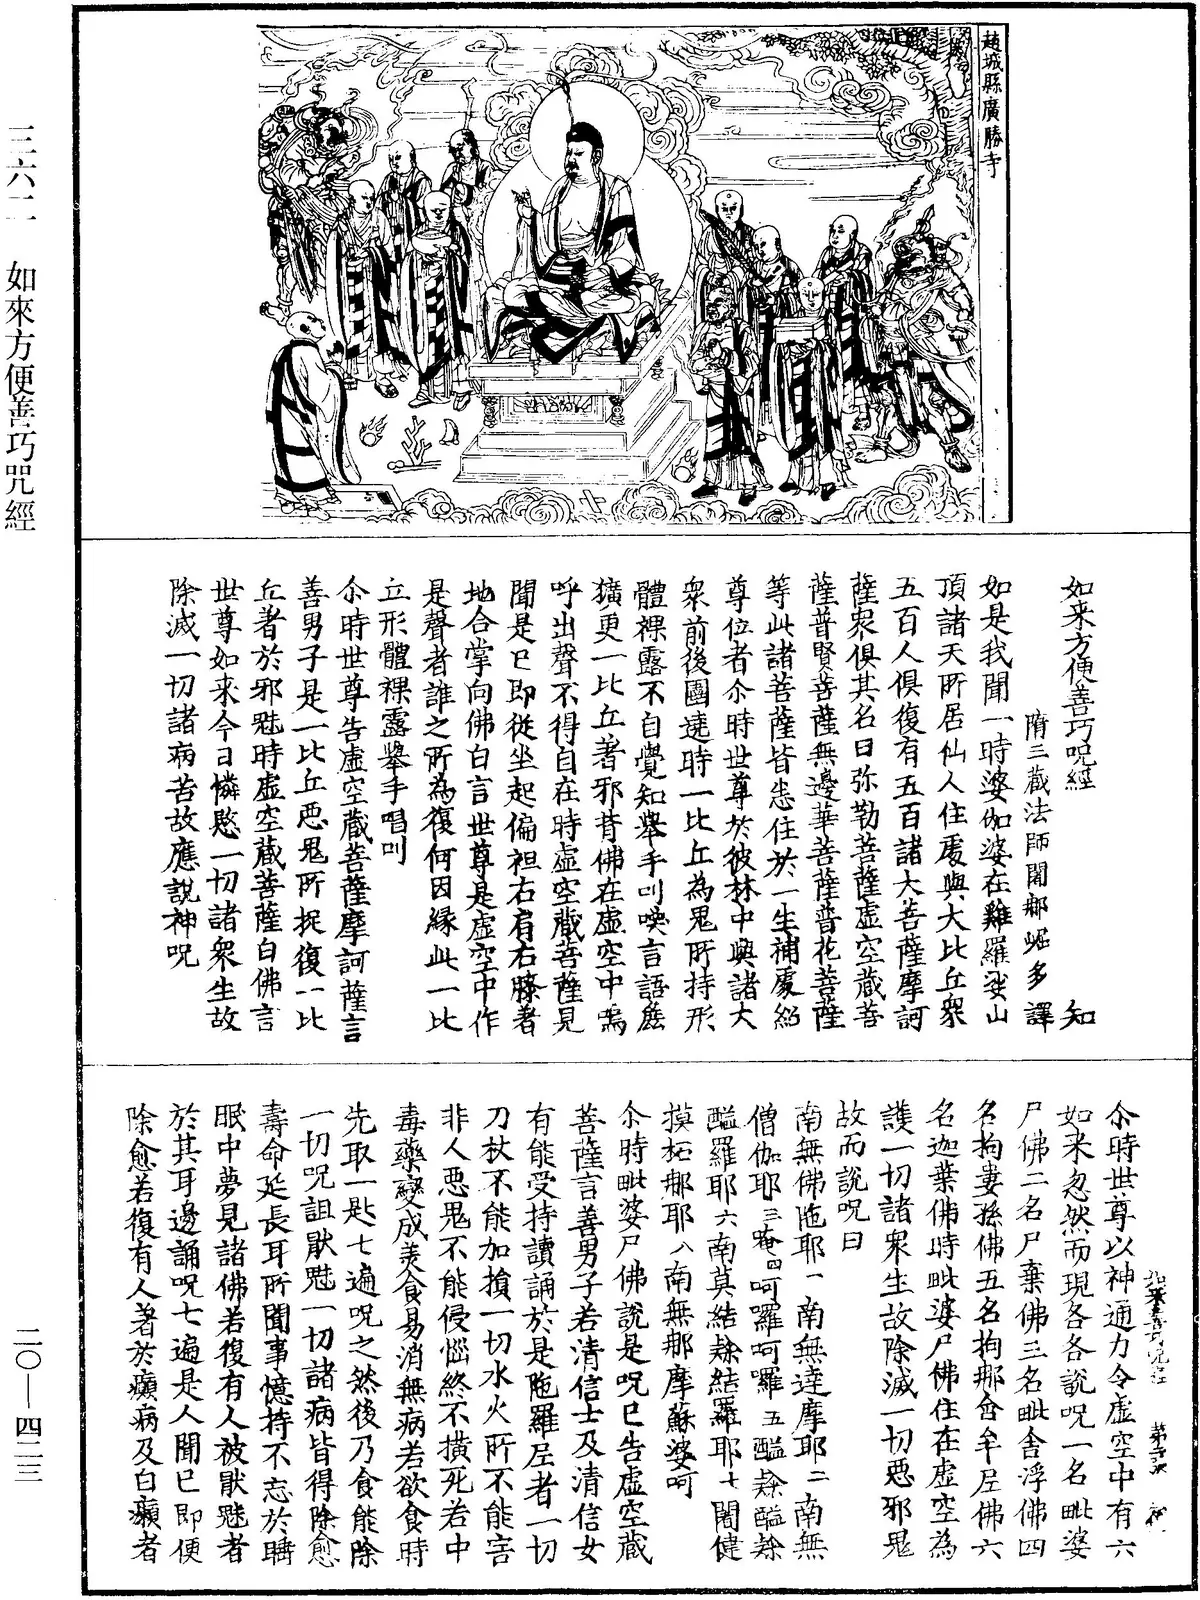 三六二　如來方便善巧咒經
二〇—四二三
趙城縣廣勝寺
如来方便善巧呪經　知
隋三藏法師闍那崛多譯
如是我聞一時婆伽婆在雞羅娑山
頂諸天所居仙人住處與大比丘衆
五百人俱復有五百諸大菩薩摩訶
薩衆俱其名曰弥勒菩薩虛空藏菩
薩普賢菩薩無邊華菩薩普花菩薩
等此諸菩薩皆悉住於一生補處紹
尊位者尒時世尊於彼林中與諸大
衆前後圍遶時一比丘為鬼所持形
體裸露不自覺知舉手叫喚言語麁
獷更一比丘著邪背佛在虛空中嗚
呼出聲不得自在時虛空藏菩薩見
聞是已即從坐起偏袒右肩右膝著
地合掌向佛白言世尊是虛空中作
是聲者誰之所為復何因緣此一比
丘形體裸露舉手唱叫
尒時世尊告虛空藏菩薩摩訶薩言
善男子是一比丘悪鬼所捉復一比
丘著於邪魅時虛空藏菩薩白佛言
世尊如来今日憐愍一切諸衆生故
除滅一切諸病苦故應說神呪
尒時世尊以神通力令虛空中有六
如来忽然而現各各說呪一名毗婆
尸佛二名尸棄佛三名毗舍浮佛四
名拘婁孫佛五名拘那含牟尼佛六
名迦葉佛時毗婆尸佛住在虛空為
護一切諸衆生故除滅一切悪邪鬼
故而說呪曰
南無佛陁耶一南無達摩耶二南無
僧伽耶三唵四呵囉呵囉五醯㜸醯㜸
醯羅耶六南莫結㜸結羅耶七闍健
摸柘那耶八南無那摩蘇婆呵
尒時毗婆尸佛說是呪已告虛空藏
菩薩言善男子若清信士及清信女
有能受持讀誦於是陁羅尼者一切
刀杖不能加損一切水火所不能害
非人悪鬼不能侵惱終不横死若中
毒藥變成美食易消無病若欲食時
先取一匙七遍呪之然後乃食能除
一切呪詛猒魅一切諸病皆得除愈
壽命延長耳所聞事憶持不忘於睡
眠中夢見諸佛若復有人被猒魅者
於其耳邊誦呪七遍是人聞已即便
除愈若復有人著於癩病及白癩者